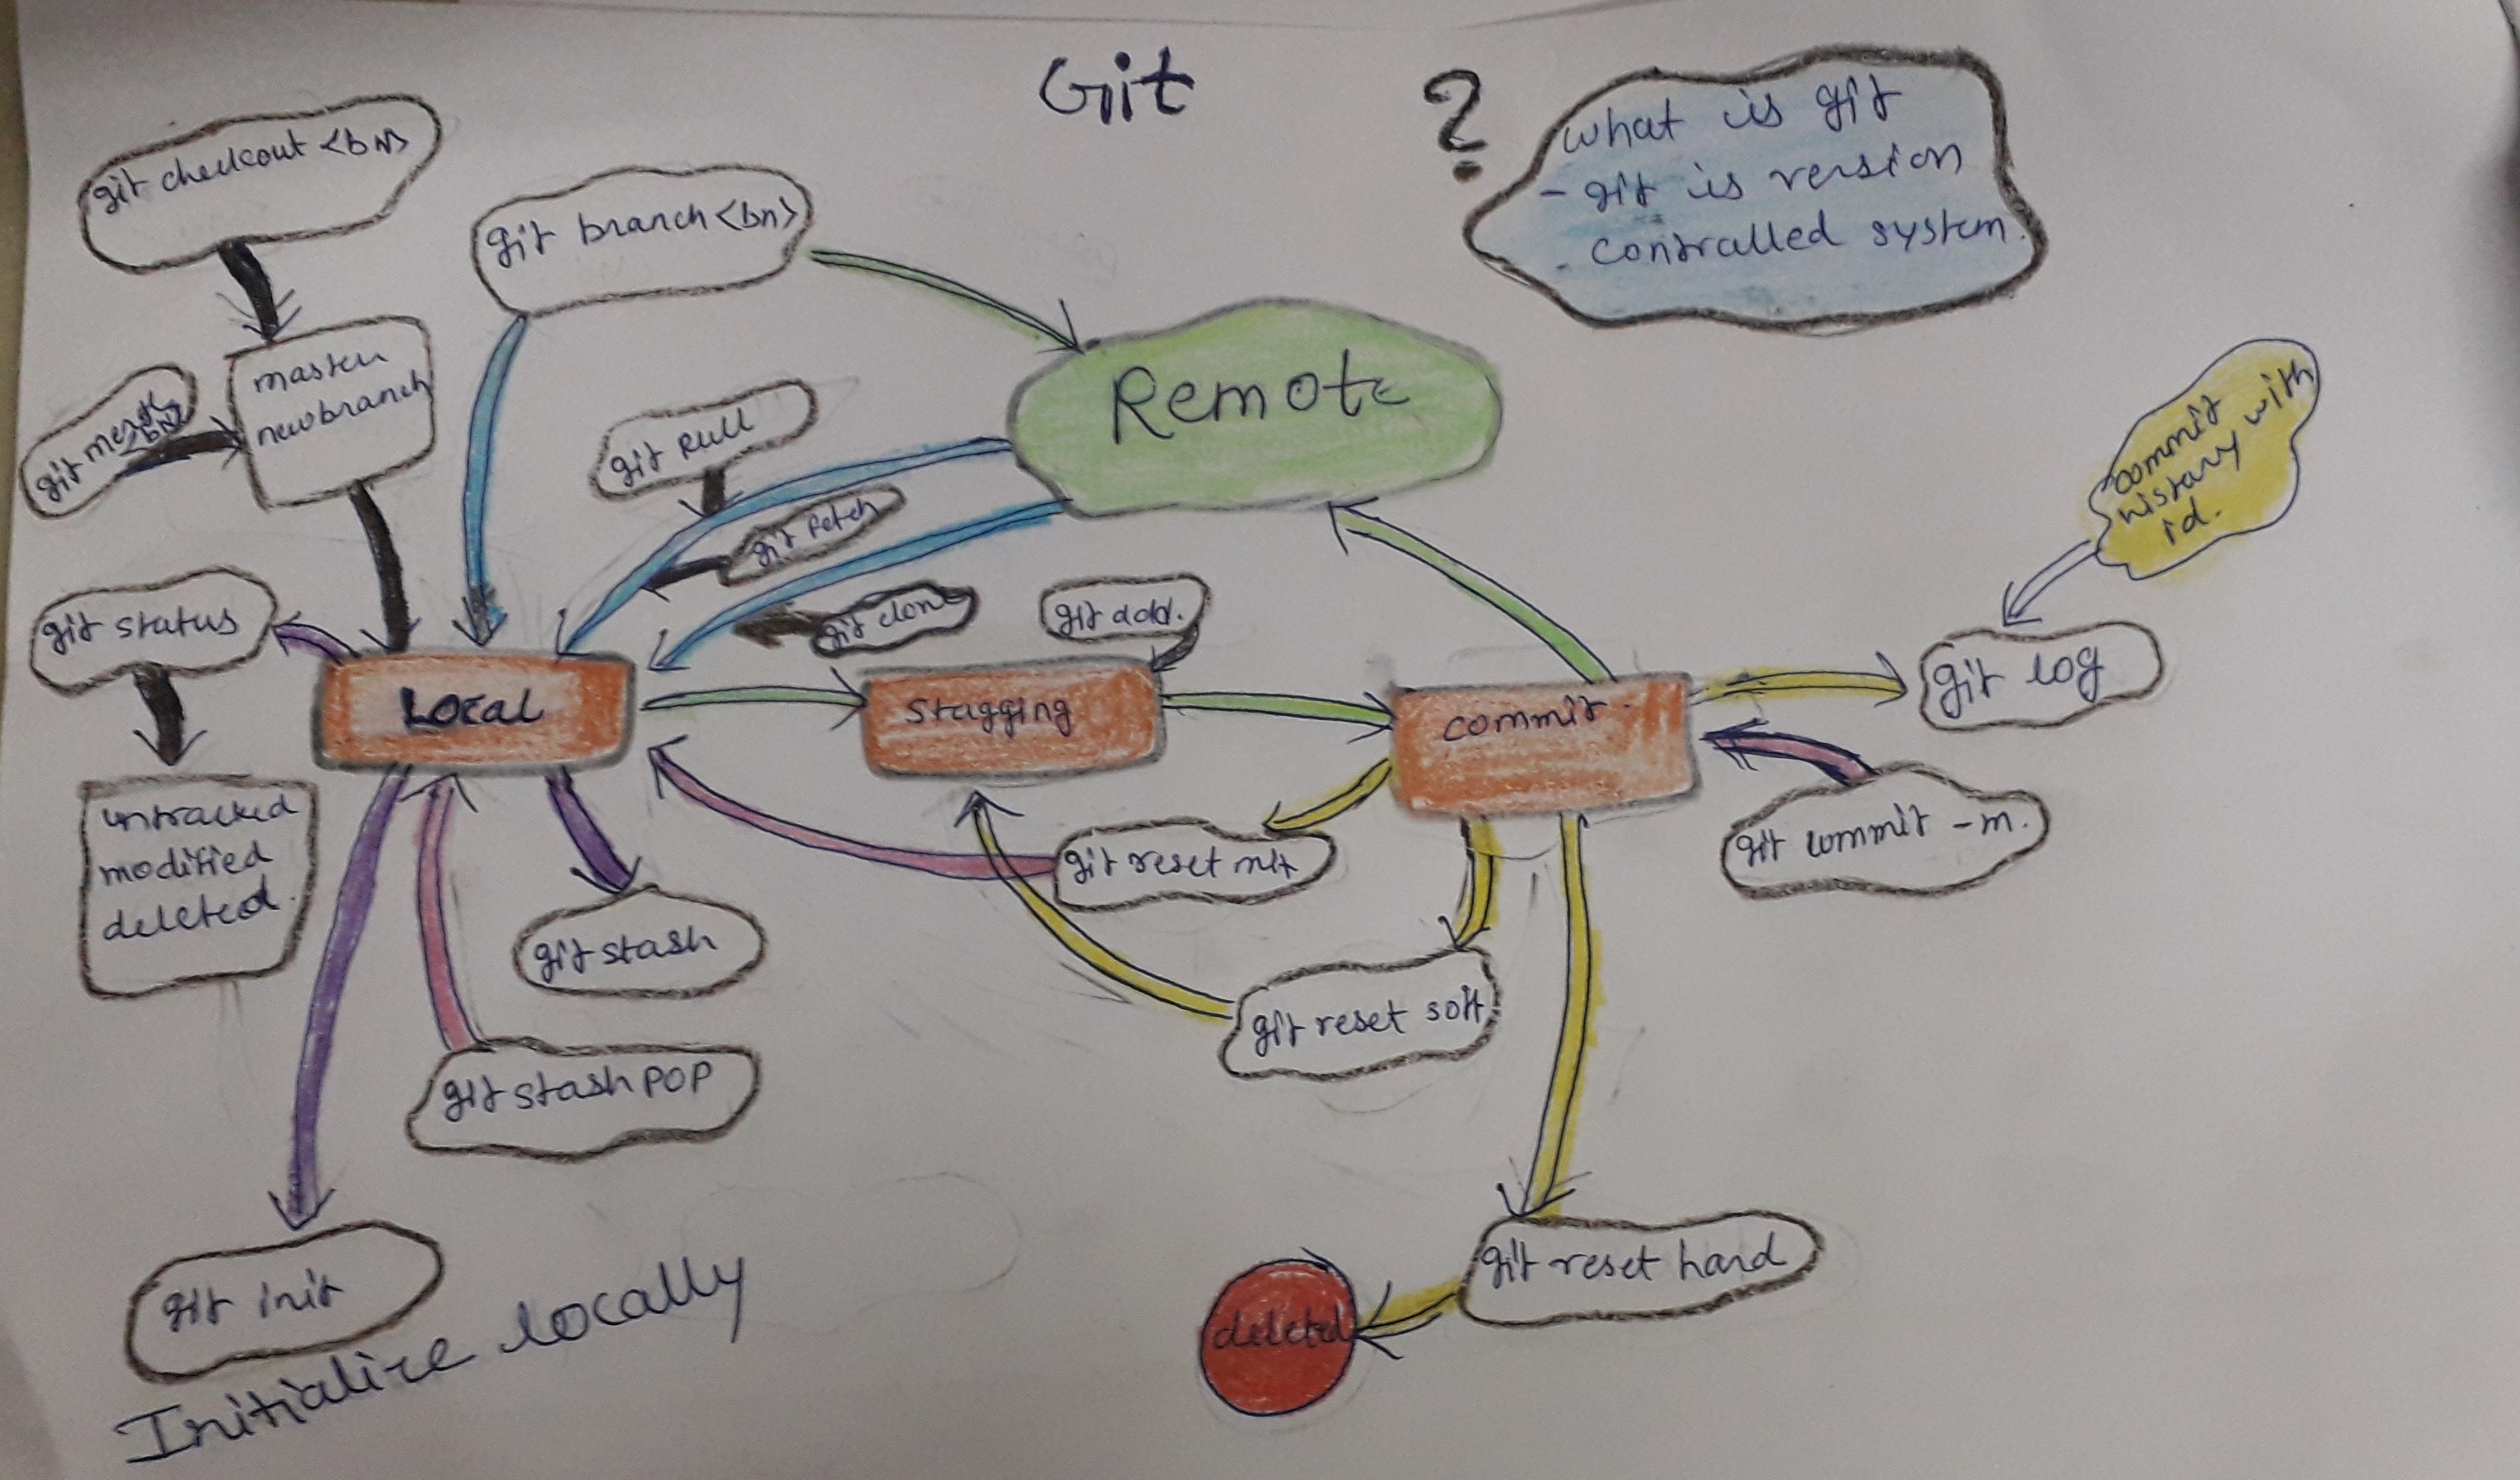 Git
?
what is git
- git is version
- controlled system.
git checkout <bn>
git branch <bn>
master
newbranch
git merge
<bn>
git pull
Remote
git fetch
git clone
git add.
commit
history with
id.
git status
Local
stagging
commit
git log
untracked
modified
deleted.
git reset mix
git commit -m.
git stash
git reset soft
git stash pop
git init
Initialize locally
git reset hard
deleted